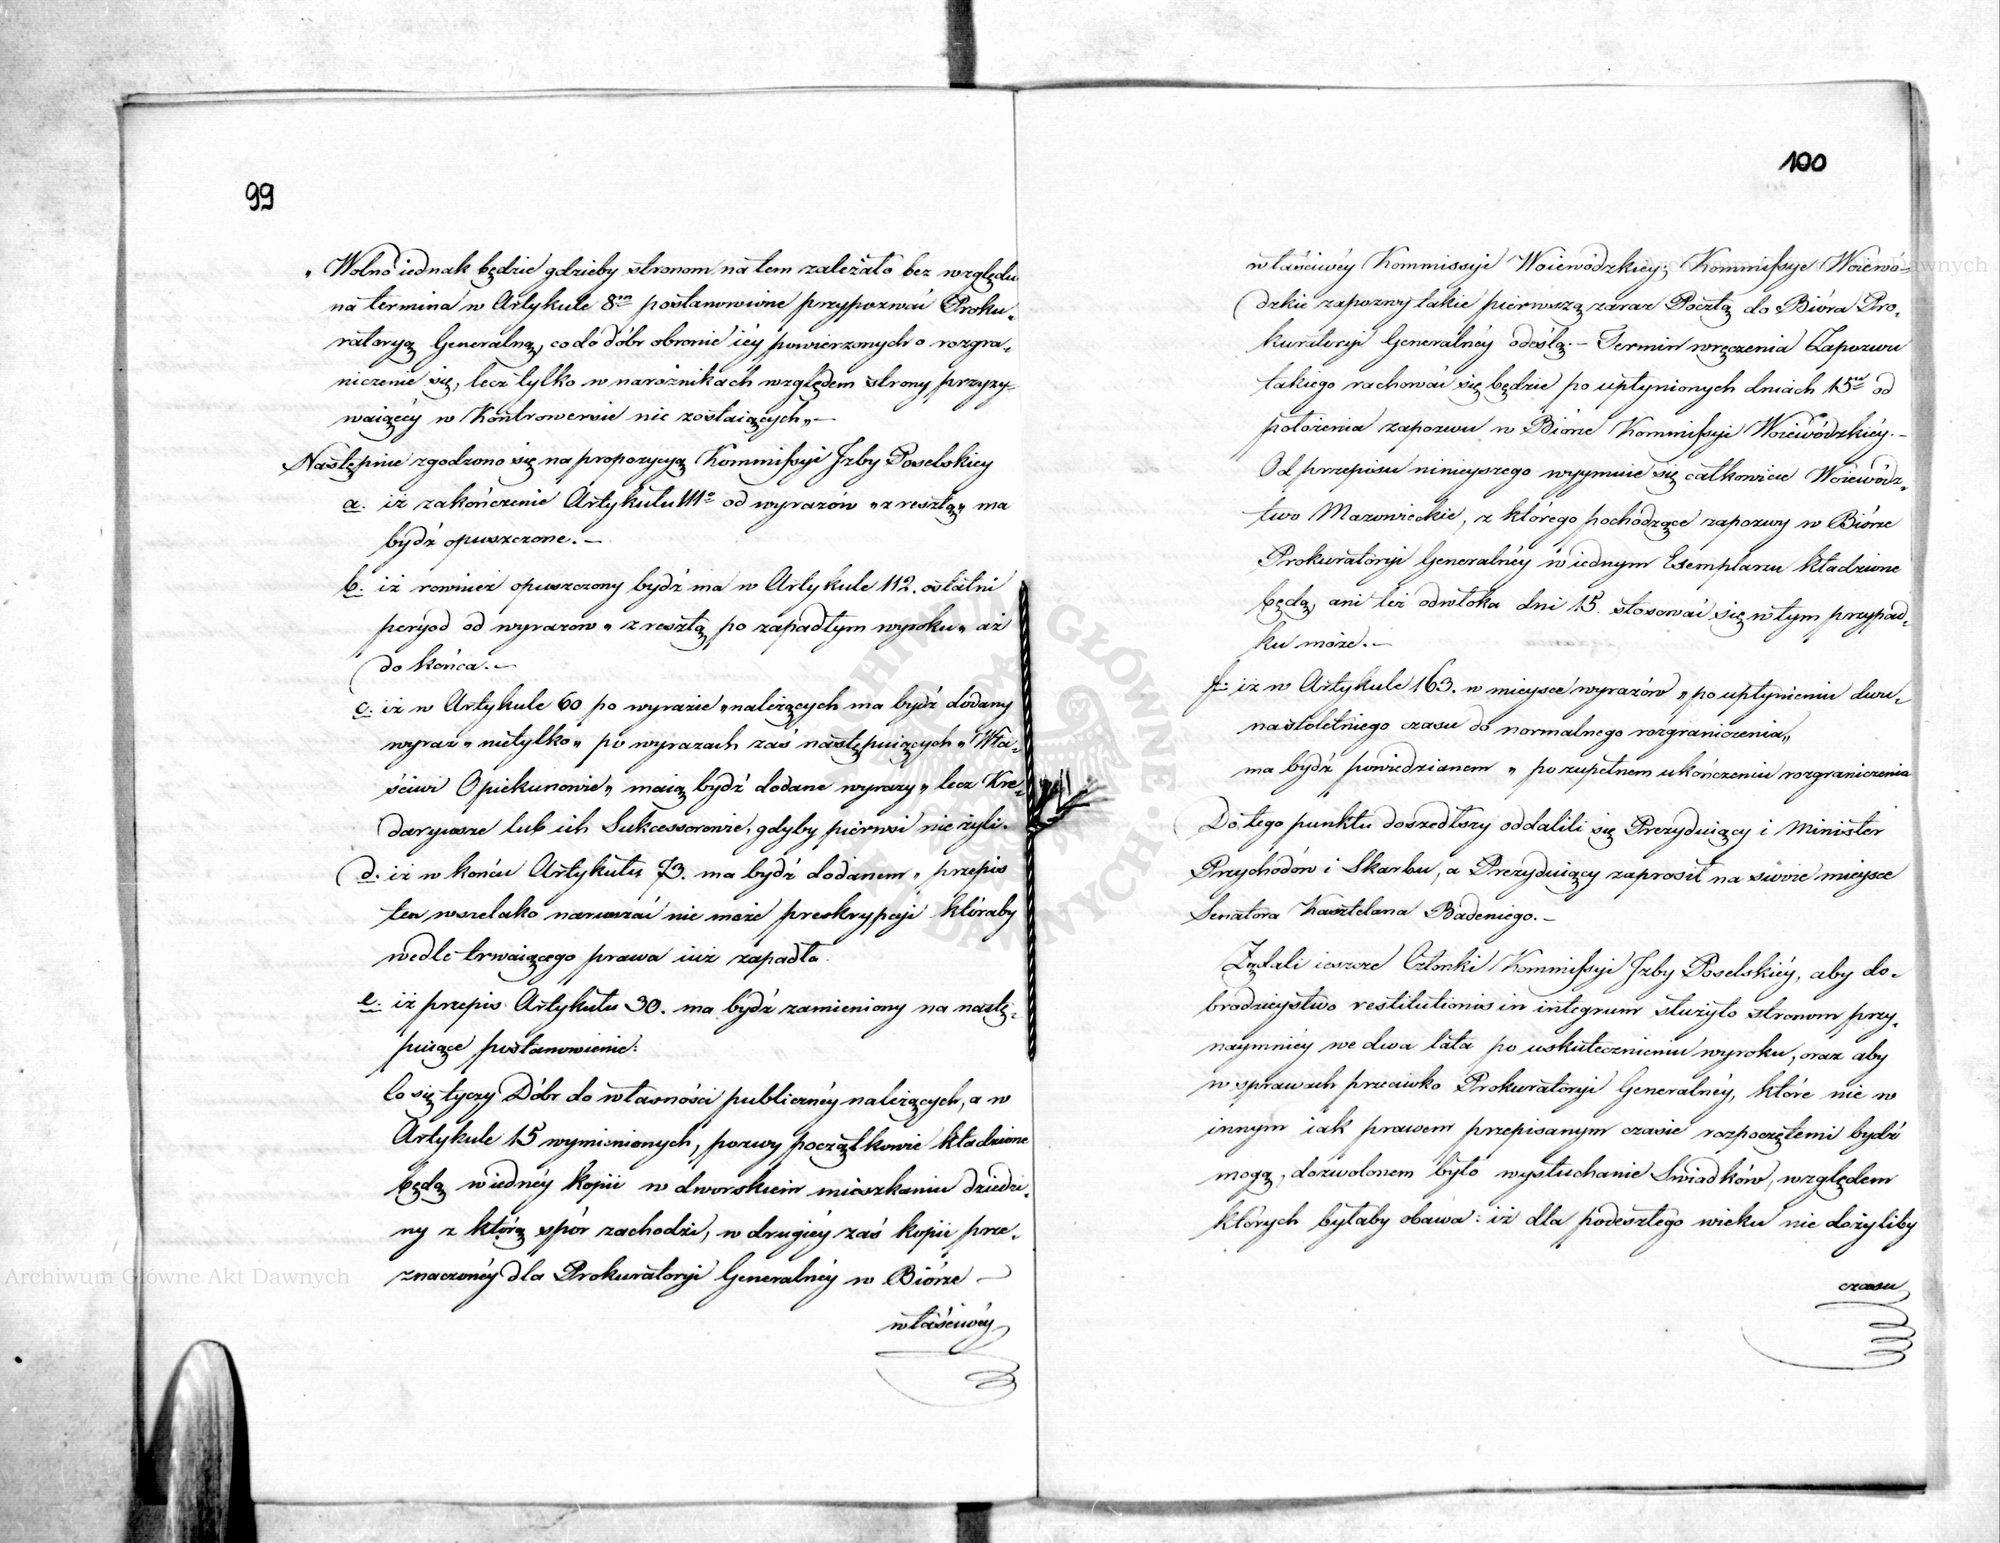 99
„ Wolno iednak będzie gdzieby stronom na tem zależało bez względu
na termina w Artykule 8m postanowione przypozwać Proku-
ratoryą Generalną, co do dóbr obronie iéy powierzonych o rozgra-
niczenie się, lecz tylko w narożnikach względem strony przyzy-
waiącéy w Kontrowersie nie zostaiących„ —
Następnie zgodzono się na propozycyą Kommissyi Izby Poselskiey
a. iż zakończenie Artykułu 111o od wyrazów „z resztą„ ma
bydź opuszczone. —
b. iż rownież opuszczony bydź ma w Artykule 112. ostatni
peryod od wyrazow „z resztą po zapadłym wyroku„ aż
do końca. —
c. iż w Artykule 60 po wyrazie „należących ma bydź dodany
wyraz „nietylko„ po wyrazach zaś następuiących „Wła-
ściwi Opiekunowie„ maią bydź dodane wyrazy „lecz Kre-
darywsze lub ich Sukcessorowie, gdyby pierwsi nie żyli.
d. iż w końcu Artykułu 73. ma bydź dodanem „ przepis
ten wszelako naruszać nie może preskrypcyi któraby
wedle trwaiącego prawa iuż zapadła.
e. iż przepis Artykułu 30. ma bydź zamieniony na nastę-
puiące postanowienie:
Co się tyczy Dóbr do własności publicznéy należących, a w
Artykule 15 wymienionych, pozwy początkowie kładzione
będą w iednéy kopii w dworskiem mieszkaniu dziedzi-
ny z którą spór zachodzi, w drugiéy zaś kopii prze-
znaczonéy dla Prokuratoryi Generalnéy w Biórze —
właściwéy
100
właściwéy Kommissyi Woiewódzkiey; Kommissye Woiewó-
dzkie zapozwy takie pierwszą zaraz Pocztą do Bióra Pro-
kuratoryi Generalnéy odeślą. — Termin wręczenia Zapozwu
takiego rachować się będzie po upłynionych dniach 15tu od
położenia zapozwu w Biórze Kommissyi Woiewódzkiéy. —
Od przepisu ninieyszego wyymuie się całkowicie Woiewódz-
two Mazowieckie, z którego pochodzące zapozwy w Biórze
Prokuratoryi Generalnéy w iednym Exemplarzu kładzione
będą, ani też odwłoka dni 15. stosować się w tym przypad-
ku może. —
f. iż w Artykule 163. w mieysce wyrazów „po upłynieniu dwu-
nastoletniego czasu do normalnego rozgraniczenia„
ma bydź powiedzianem „ po zupełnem ukończeniu rozgraniczenia
Do tego punktu doszedłszy oddalili się Prezyduiący i Minister
Przychodów i Skarbu, a Prezyduiący zaprosił na swoie mieysce
Senatora Kasztelana Badeniego. —
Żądali ieszcze Członki Kommissyi Izby Poselskiéy, aby do-
brodzieystwo restitutionis in integrum służyło stronom przy-
naymniéy we dwa lata po uskutecznieniu wyroku, oraz aby
w sprawach przeciwko Prokuratoryi Generalnéy, które nie w
innym iak prawem przepisanym czasie rozpoczętemi bydź
mogą, dozwolonem było wysłuchanie Swiadków, względem
których byłaby obawa: iż dla podeszłego wieku nie dożyliby
czasu
Archiwum Główne Akt Dawnych
Archiwum Główne Akt Dawnych
ARCHIWUM GŁÓWNE AKT DAWNYCH